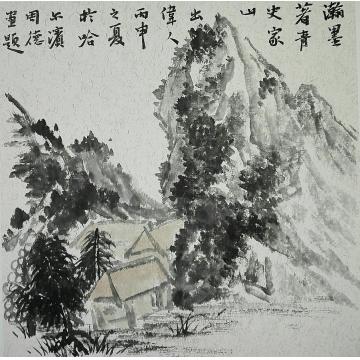 瀚墨
著青
史家
山
出
偉人
丙申
之夏
於哈
尔濱
周德
題